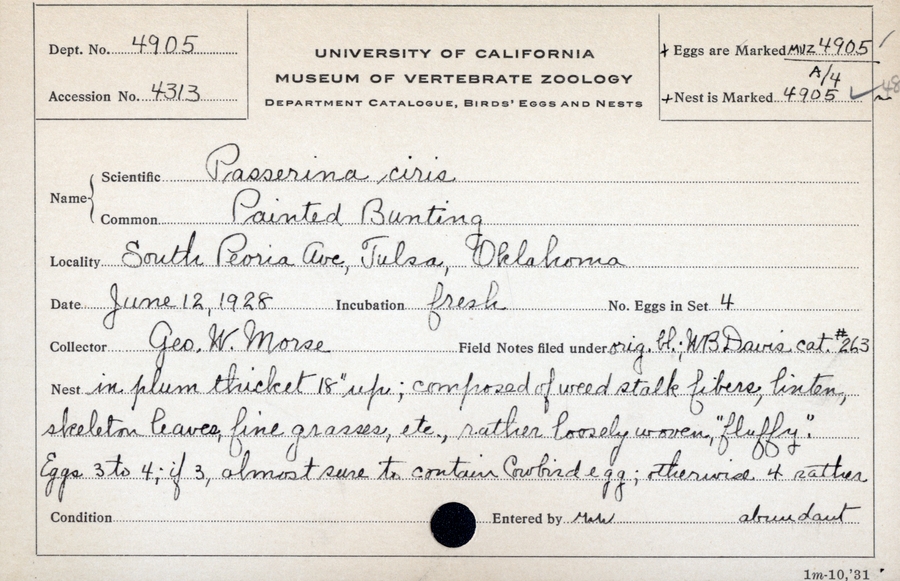 Dept. No. 4905
Accession No. 4313
UNIVERSITY OF CALIFORNIA
MUSEUM OF VERTEBRATE ZOOLOGY
DEPARTMENT CATALOGUE, BIRDS' EGGS AND NESTS
+ Eggs are Marked MVZ 4905
A/4
+ Nest is Marked 4905 ✓
Name { Scientific Passerina ciris
Common Painted Bunting
Locality South Peoria Ave, Tulsa, Oklahoma
Date June 12, 1928 Incubation fresh No. Eggs in Set 4
Collector Geo. W. Morse Field Notes filed under orig. bl.; WB Davis cat. #263
Nest in plum thicket 18" up; composed of weed stalk fibers, linten,
skeleton leaves, fine grasses, etc., rather loosely woven, "fluffy".
Eggs 3 to 4; if 3, almost sure to contain Cowbird egg; otherwise 4 rather
Condition Entered by abundant
1m-10,'31